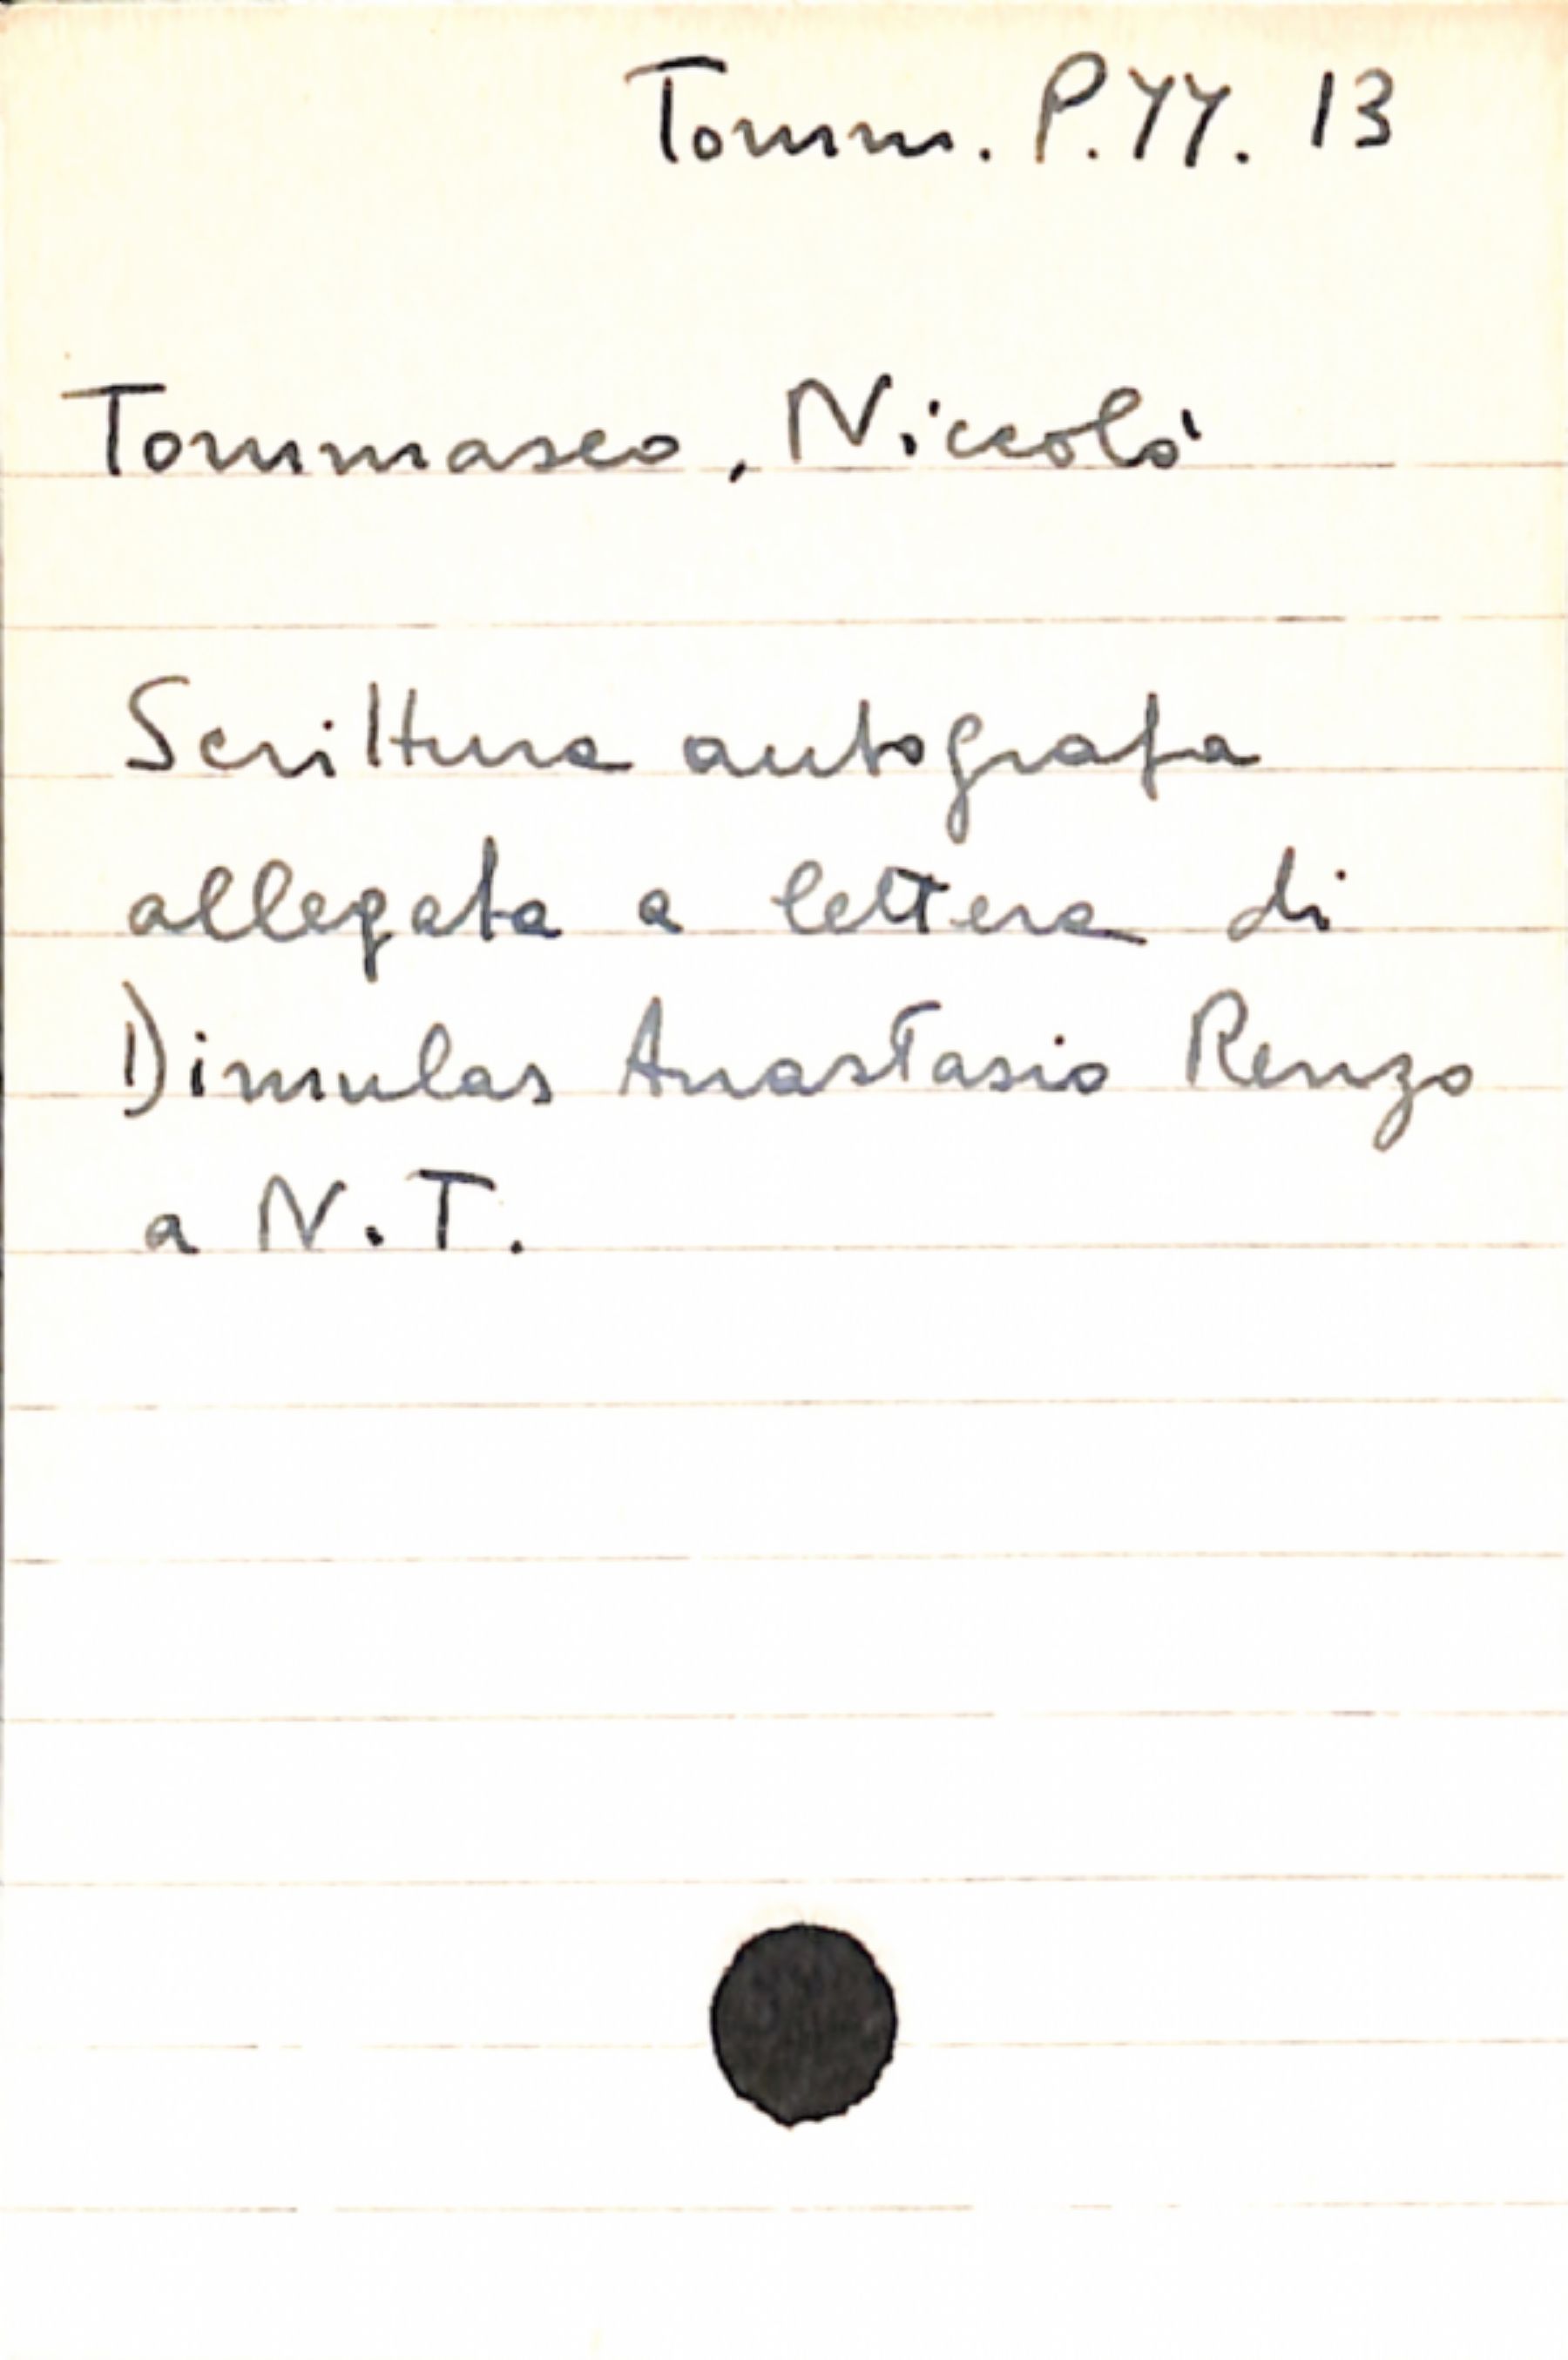 Tomm. P.77. 13
Tommaseo, Niccolò
Scrittura autografa
allegata a lettera di
Dimulas Anastasio Renzo
a N.T.